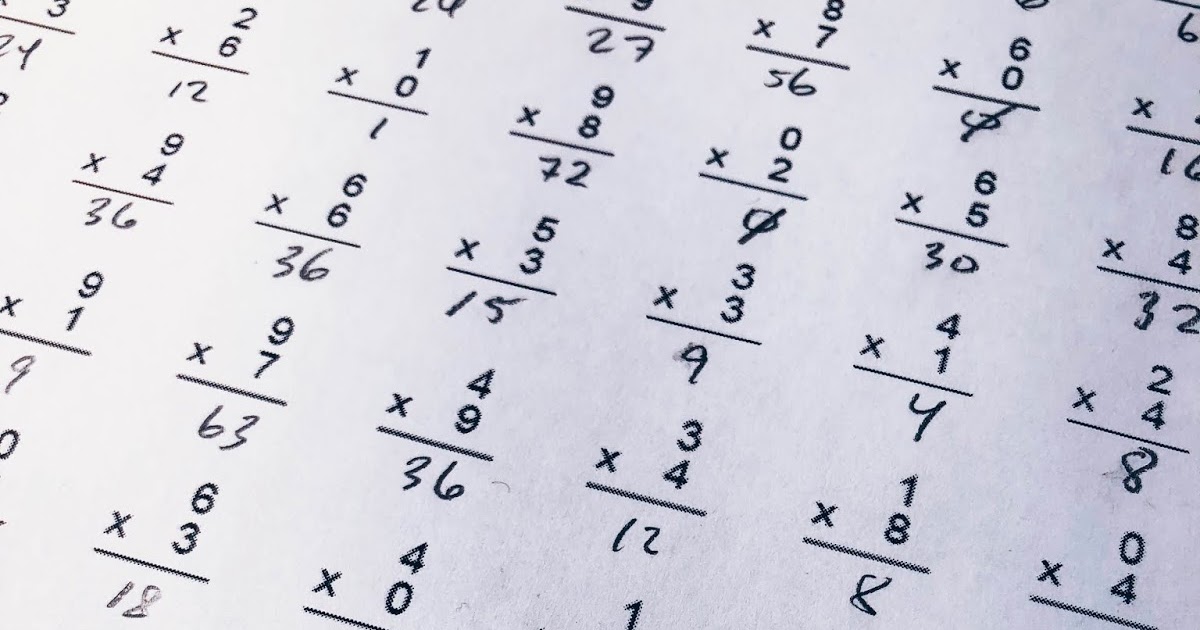 8 6
x 7 x 0 x
27 56 0 16
2 1 9 0 6 8
3 x 6 x 0 x 8 x 2 x 5 x 4
24 12 1 72 0 30 32
9 6 5 3 4 2
x 4 x 6 x 3 x 3 x 1 x 4
36 36 15 9 4 8
9 9 4 3 1 0
x 1 x 7 x 9 x 4 x 8 x 4
9 63 36 12 8
6 4 1
0 x 3 x 0
18